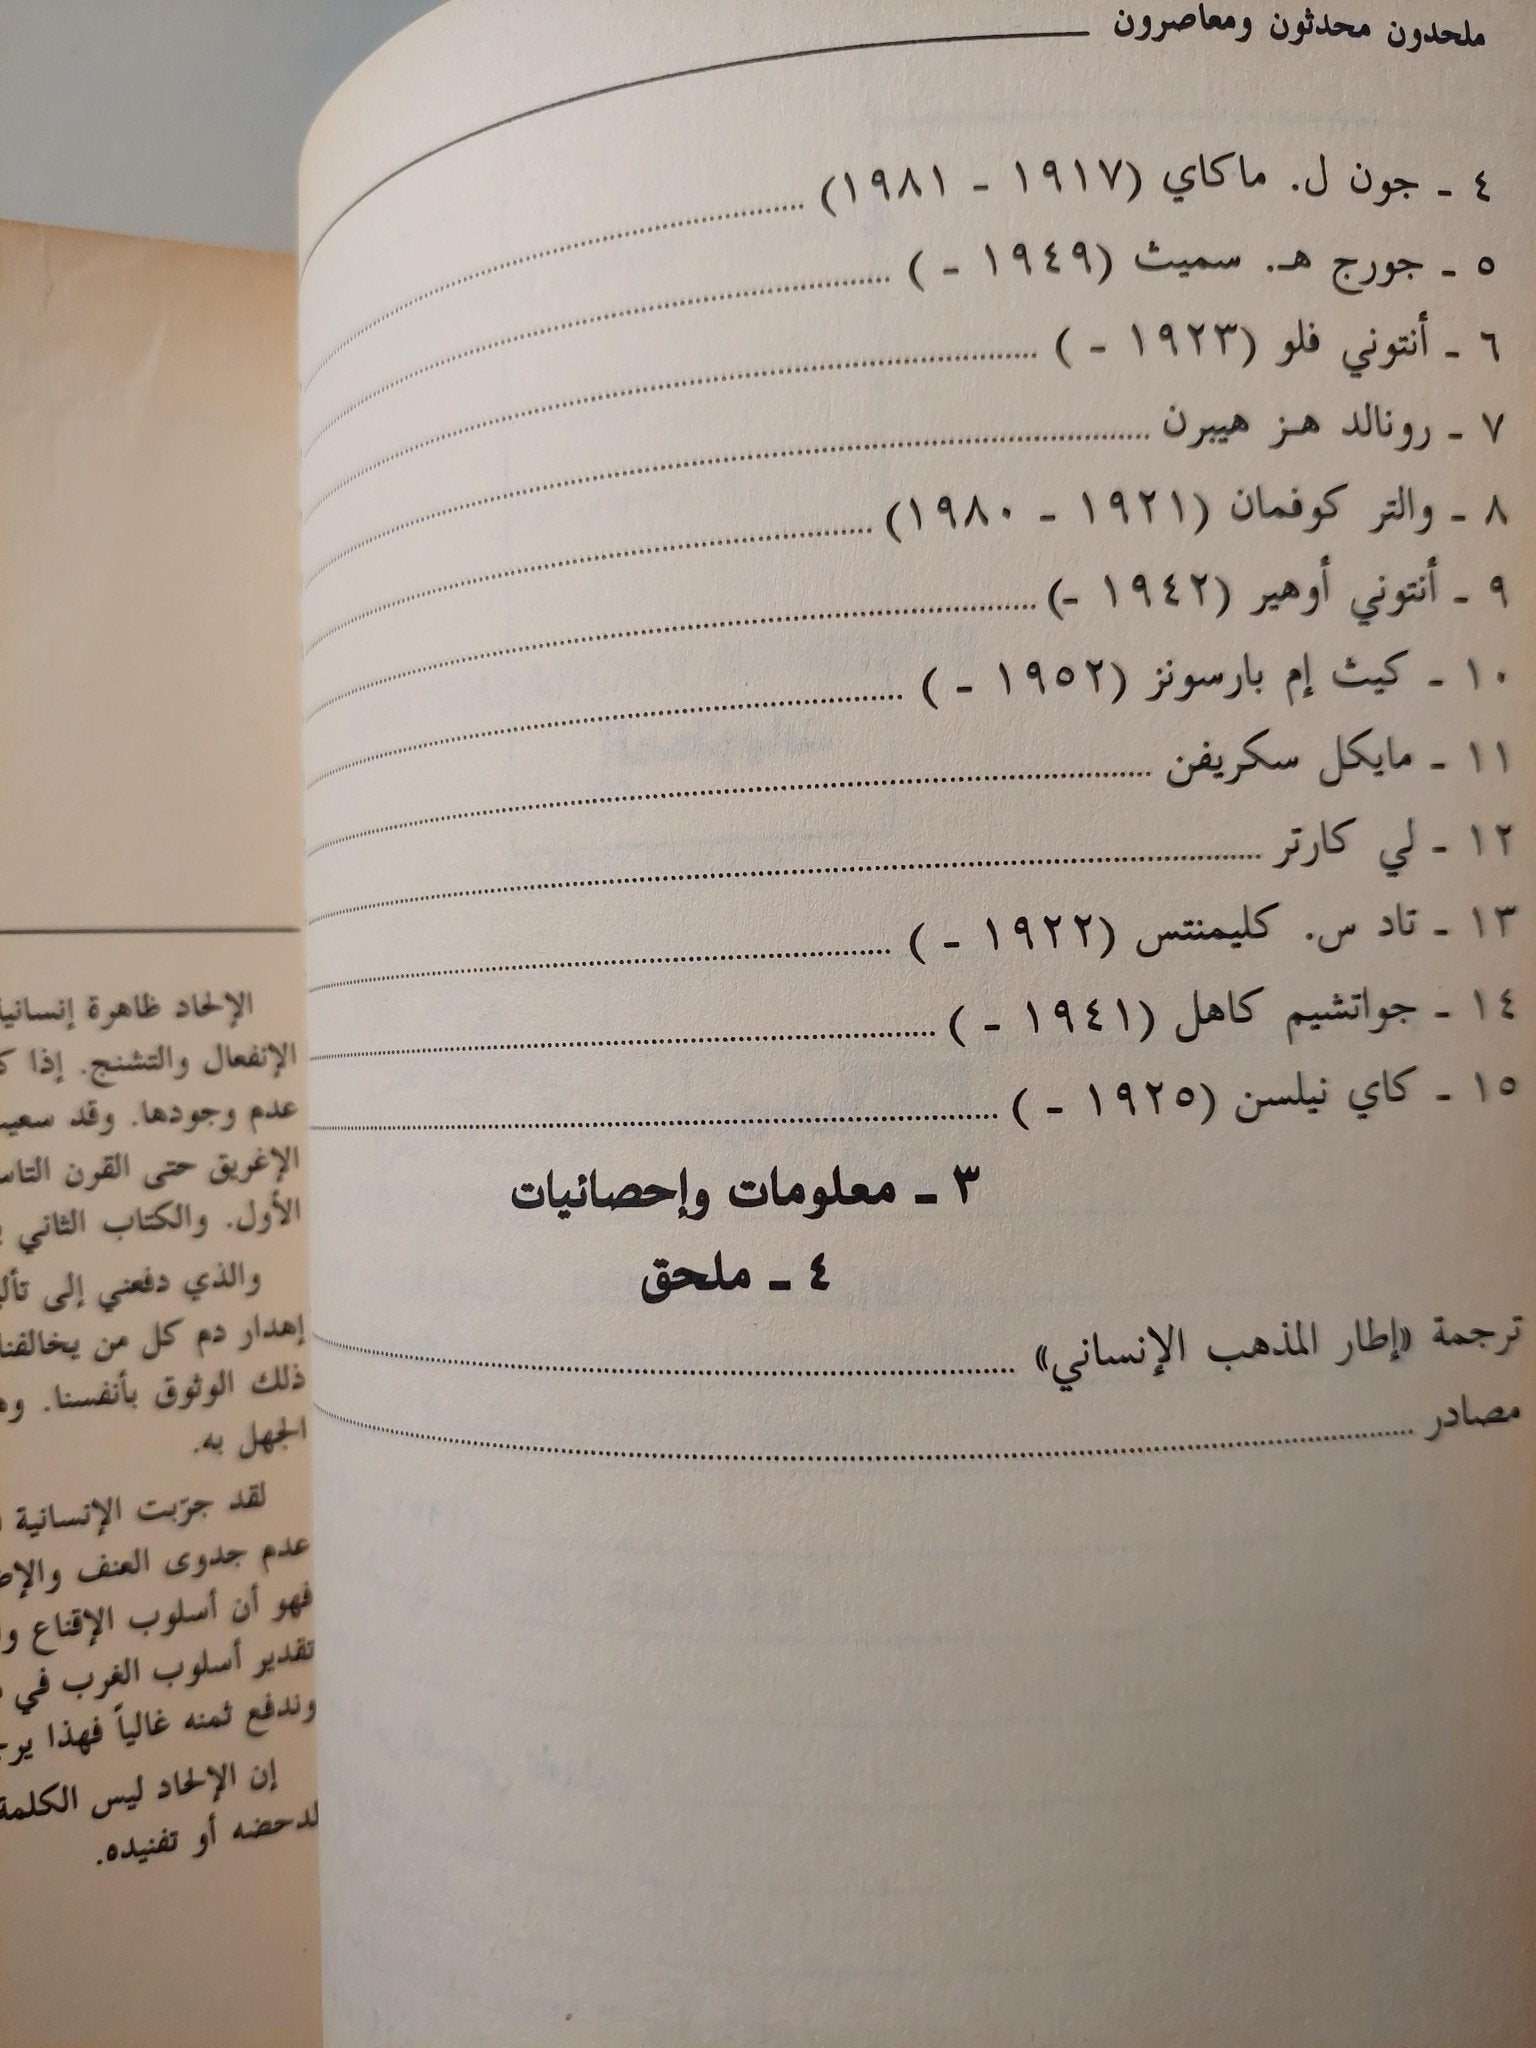 ملحدون محدثون ومعاصرون
٤ ـ جون ل. ماكاي (١٩١٧ ـ ١٩٨١)
٥ ـ جورج هـ. سميث (١٩٤٩ ـ )
٦ ـ أنتوني فلو (١٩٢٣ ـ )
٧ ـ رونالد هـز هيبرن
٨ ـ والتر كوفمان (١٩٢١ ـ ١٩٨٠)
٩ ـ أنتوني أوهير (١٩٤٢ ـ)
١٠ ـ كيث إم بارسونز (١٩٥٢ ـ )
١١ ـ مايكل سكريفن
١٢ ـ لي كارتر
١٣ ـ تاد س. كليمنتس (١٩٢٢ ـ )
١٤ ـ جواتشيم كاهل (١٩٤١ ـ )
١٥ ـ كاي نيلسن (١٩٢٥ ـ )
٣ ـ معلومات وإحصائيات
٤ ـ ملحق
ترجمة «إطار المذهب الإنساني»
مصادر
الإلحاد ظاهرة
الإنفعال والتشنج. إذا
عدم وجودها. وقد
الإغريق حتى القرن
الأول. والكتاب الثاني
والذي دفعني إلى
إهدار دم كل من يخالفنا
ذلك الوثوق بأنفسنا.
الجهل به.
لقد جرّبت الإنسانية
عدم جدوى العنف
فهو أن أسلوب الإقناع
تقدير أسلوب الغرب في
وندفع ثمنه غالياً فهذا
إن الإلحاد ليس الكلمة
لدحضه أو تفنيده.